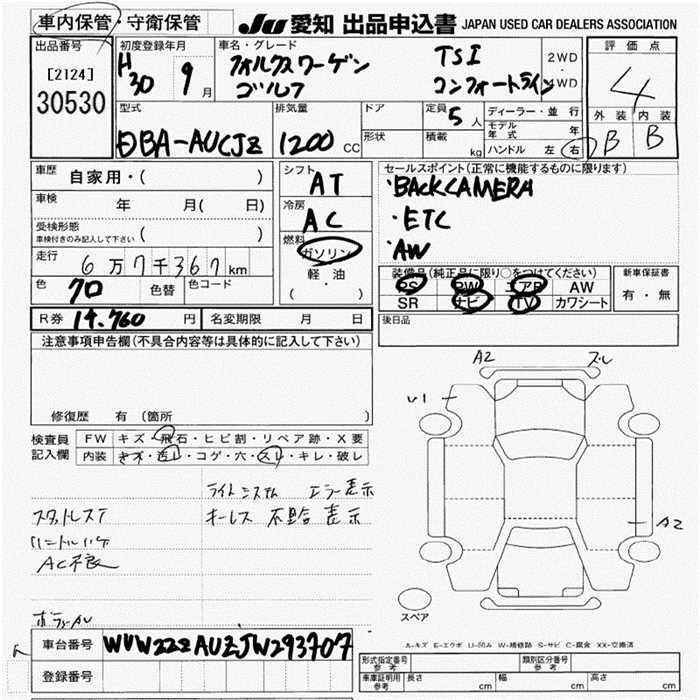 車内保管・守衛保管
JU 愛知 出品申込書 JAPAN USED CAR DEALERS ASSOCIATION
出品番号
[2124]
30530
初度登録年月
H30 9 月
車名・グレード
フォルクスワーゲン TSI
ゴルフ コンフォートライン
2WD
・
4WD
評価点
4
外装 内装
B B
型式
DBA-AUCJZ
排気量
1200 CC
ドア
形状
定員 5 人
積載 kg
ディーラー・並行
モデル年式 年
ハンドル 左 右
車歴 自家用・( )
車検 年 月( 日)
受検形態
車検付きのみ記入して下さい ( )
走行 6万7千367 km
色 クロ 色替 色コード
シフト AT
冷房 AC
燃料
ガソリン
軽・油
( ・ )
セールスポイント(正常に機能するものに限ります)
・BACKCAMERA
・ETC
・AW
装備品(純正品に限り○をつけてください)
PS PW エアB AW
SR ナビ TV カワシート
新車保証書
有・無
R券 14.760 円 名変期限 月 日
後日品
注意事項申告欄(不具合内容等は具体的に記入して下さい)
修復歴 有 (箇所 )
検査員記入欄
FW キズ・飛石・ヒビ割・リペア跡・X要
内装 キズ・汚レ・コゲ・穴・スレ・キレ・破レ
ライトシステム エラー表示
スタットレスT キーレス 不具合 表示
ハンドルハゲ
AC不良
A2 スレ
U1
A2
スペア
A-キズ E-エクボ U-凹み W-補修跡 S-サビ C-腐食 XX-交換済
車台番号 WVWZZZAUZJW293707
登録番号
型式指定番号 参考
類別区分番号 参考
車庫証明用 参考 長さ cm 幅 cm 高さ cm